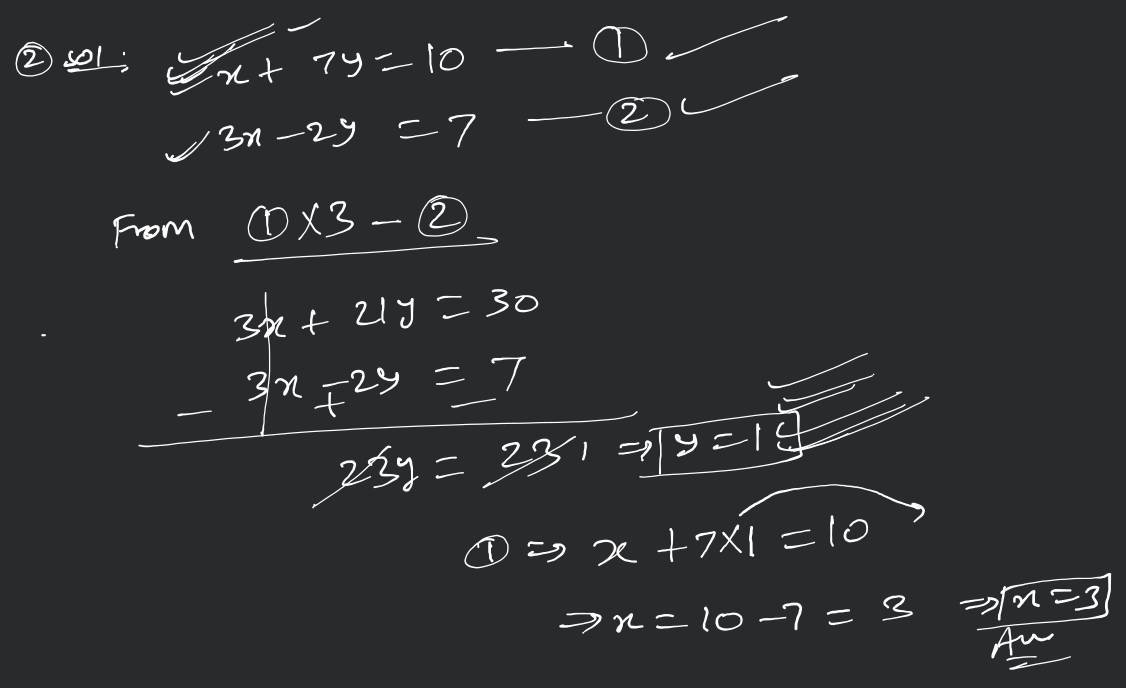 ② sol:
x + 7y = 10 — ①
3x - 2y = 7 — ②
From ① × 3 - ②
3x + 21y = 30
3x - 2y = 7
- + -
23y = 23 1 ⇒ y = 1
① ⇒ x + 7×1 = 10
⇒ x = 10 - 7 = 3 ⇒ x = 3
Ans